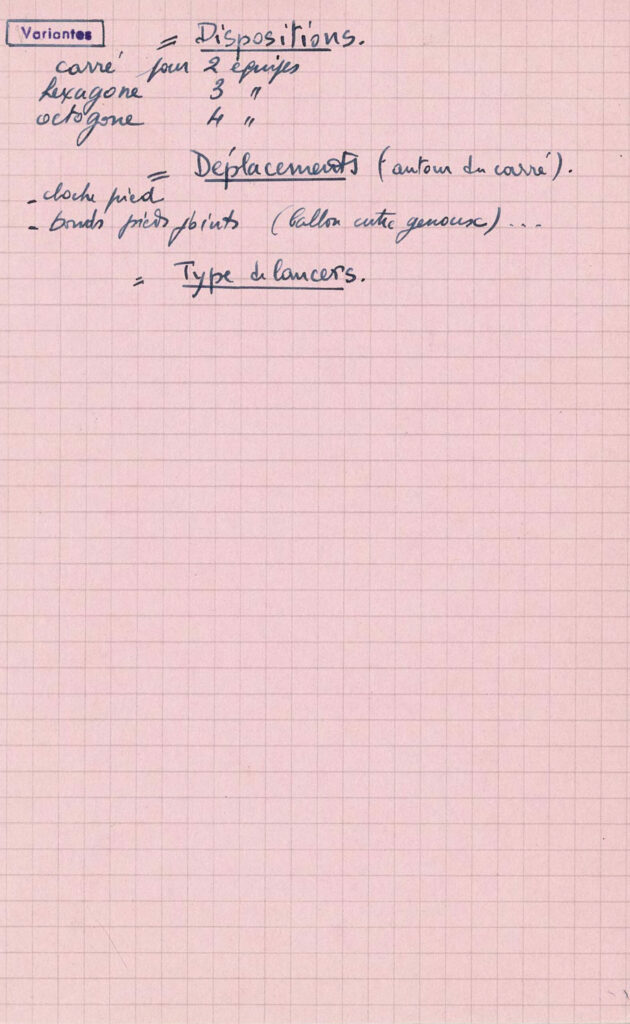 Variantes = Dispositions.
carré pour 2 équipes
hexagone 3 "
octogone 4 "
= Déplacements (autour du carré).
- cloche pied
- bonds pieds joints (ballon entre genoux) ...
= Type de lancers.